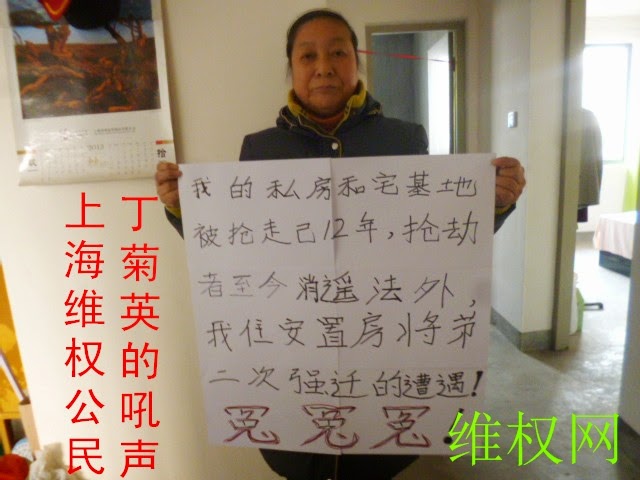 上海维权公民
丁菊英的吼声
我的私房和宅基地
被抢走己12年，抢劫
者至今消遥法外，
我住安置房将苐
二次强迁的遭遇！
冤冤冤！
维权网